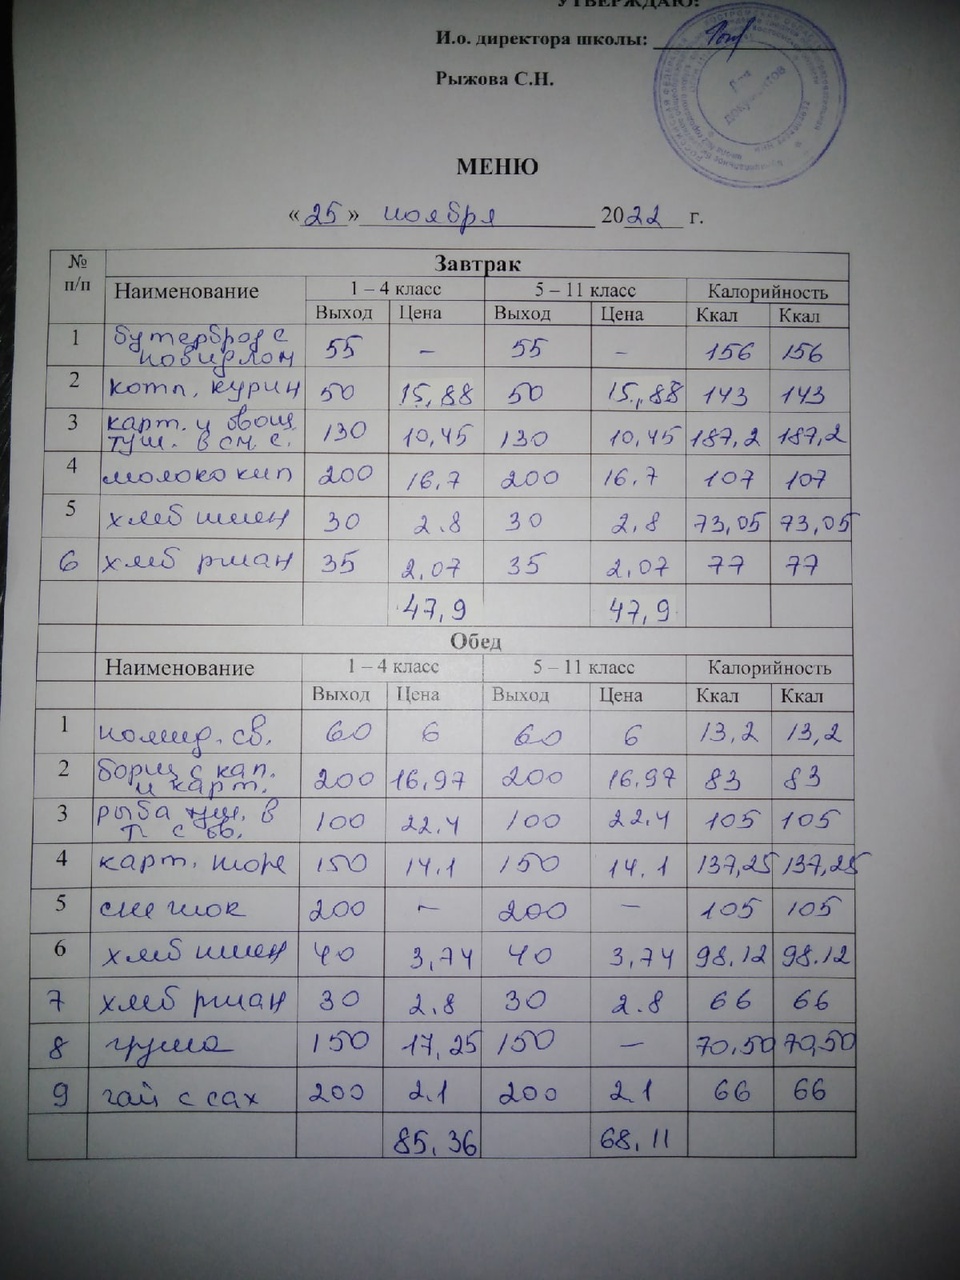 УТВЕРЖДАЮ:
И.о. директора школы:
Рыжова С.Н.
МЕНЮ
«25» ноября 2022 г.
№ п/п Завтрак
Наименование 1 – 4 класс 5 – 11 класс Калорийность
Выход Цена Выход Цена Ккал Ккал
1 бутерброд с повидлом 55 – 55 – 156 156
2 котл. курин 50 15,88 50 15,88 143 143
3 карт. и овощ туш. в см. с. 130 10,45 130 10,45 187,2 187,2
4 молоко кип 200 16,7 200 16,7 107 107
5 хлеб пшен 30 2.8 30 2,8 73,05 73,05
6 хлеб ржан 35 2,07 35 2,07 77 77
47,9 47,9
Обед
Наименование 1 – 4 класс 5 – 11 класс Калорийность
Выход Цена Выход Цена Ккал Ккал
1 помид. св. 60 6 60 6 13,2 13,2
2 борщ с кап. и карт. 200 16,97 200 16.97 83 83
3 рыба туш. в т. с ов. 100 22.4 100 22.4 105 105
4 карт. пюре 150 14.1 150 14.1 137,25 137,25
5 снежок 200 – 200 – 105 105
6 хлеб пшен 40 3,74 40 3,74 98.12 98.12
7 хлеб ржан 30 2.8 30 2.8 66 66
8 груша 150 17,25 150 – 70,50 70,50
9 чай с сах 200 2.1 200 2.1 66 66
85,36 68,11